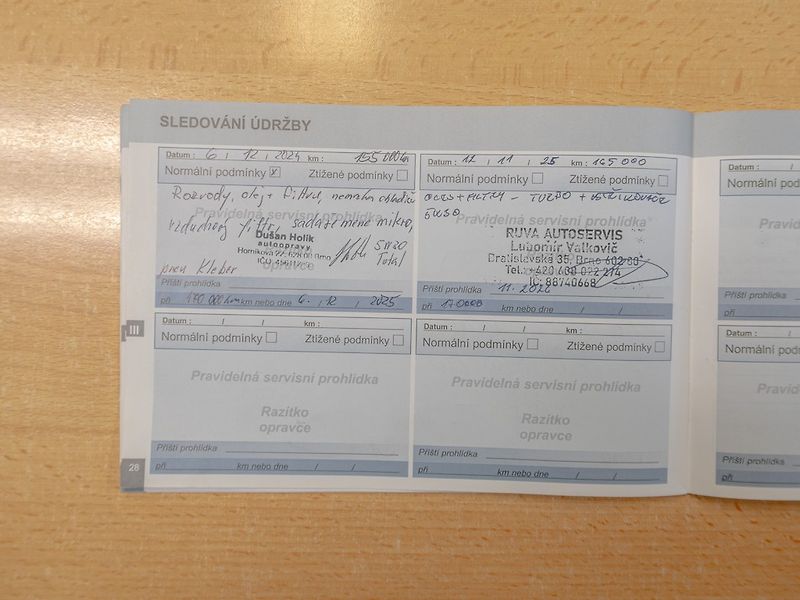 SLEDOVÁNÍ ÚDRŽBY
Datum : 6 / 12 / 2024 km : 155 000 km
Normální podmínky x Ztížené podmínky
Rozvody, olej + filtr,
Pravidelná servisní prohlídka
vzduchový filtr,
Dušan Holík
autoopravy
Horníkova 22, 628 00 Brno
5W30
Total
opravce
pneu Kleber
Příští prohlídka
při 170 000 km km nebo dne 6. / 12 / 2025
Datum : 17 / 11 / 25 km : 165 000
Normální podmínky Ztížené podmínky
OLEJ + FILTRY - TURBO +
Pravidelná servisní prohlídka
RUVA AUTOSERVIS
Lubomír Valkovič
Bratislavská 35, Brno 602 00
Tel.: +420 608 022 274
IČ: 88740668
Příští prohlídka 11. 2026
při 170000 km nebo dne / /
III
Datum : / / km :
Normální podmínky Ztížené podmínky
Pravidelná servisní prohlídka
Razítko
opravce
Příští prohlídka
při km nebo dne / /
Datum : / / km :
Normální podmínky Ztížené podmínky
Pravidelná servisní prohlídka
Razítko
opravce
Příští prohlídka
při km nebo dne / /
28
Datum : /
Normální podm
Pravid
Příští prohlídka
při
Datum : /
Normální podm
Pravi
Příští prohlídka
při